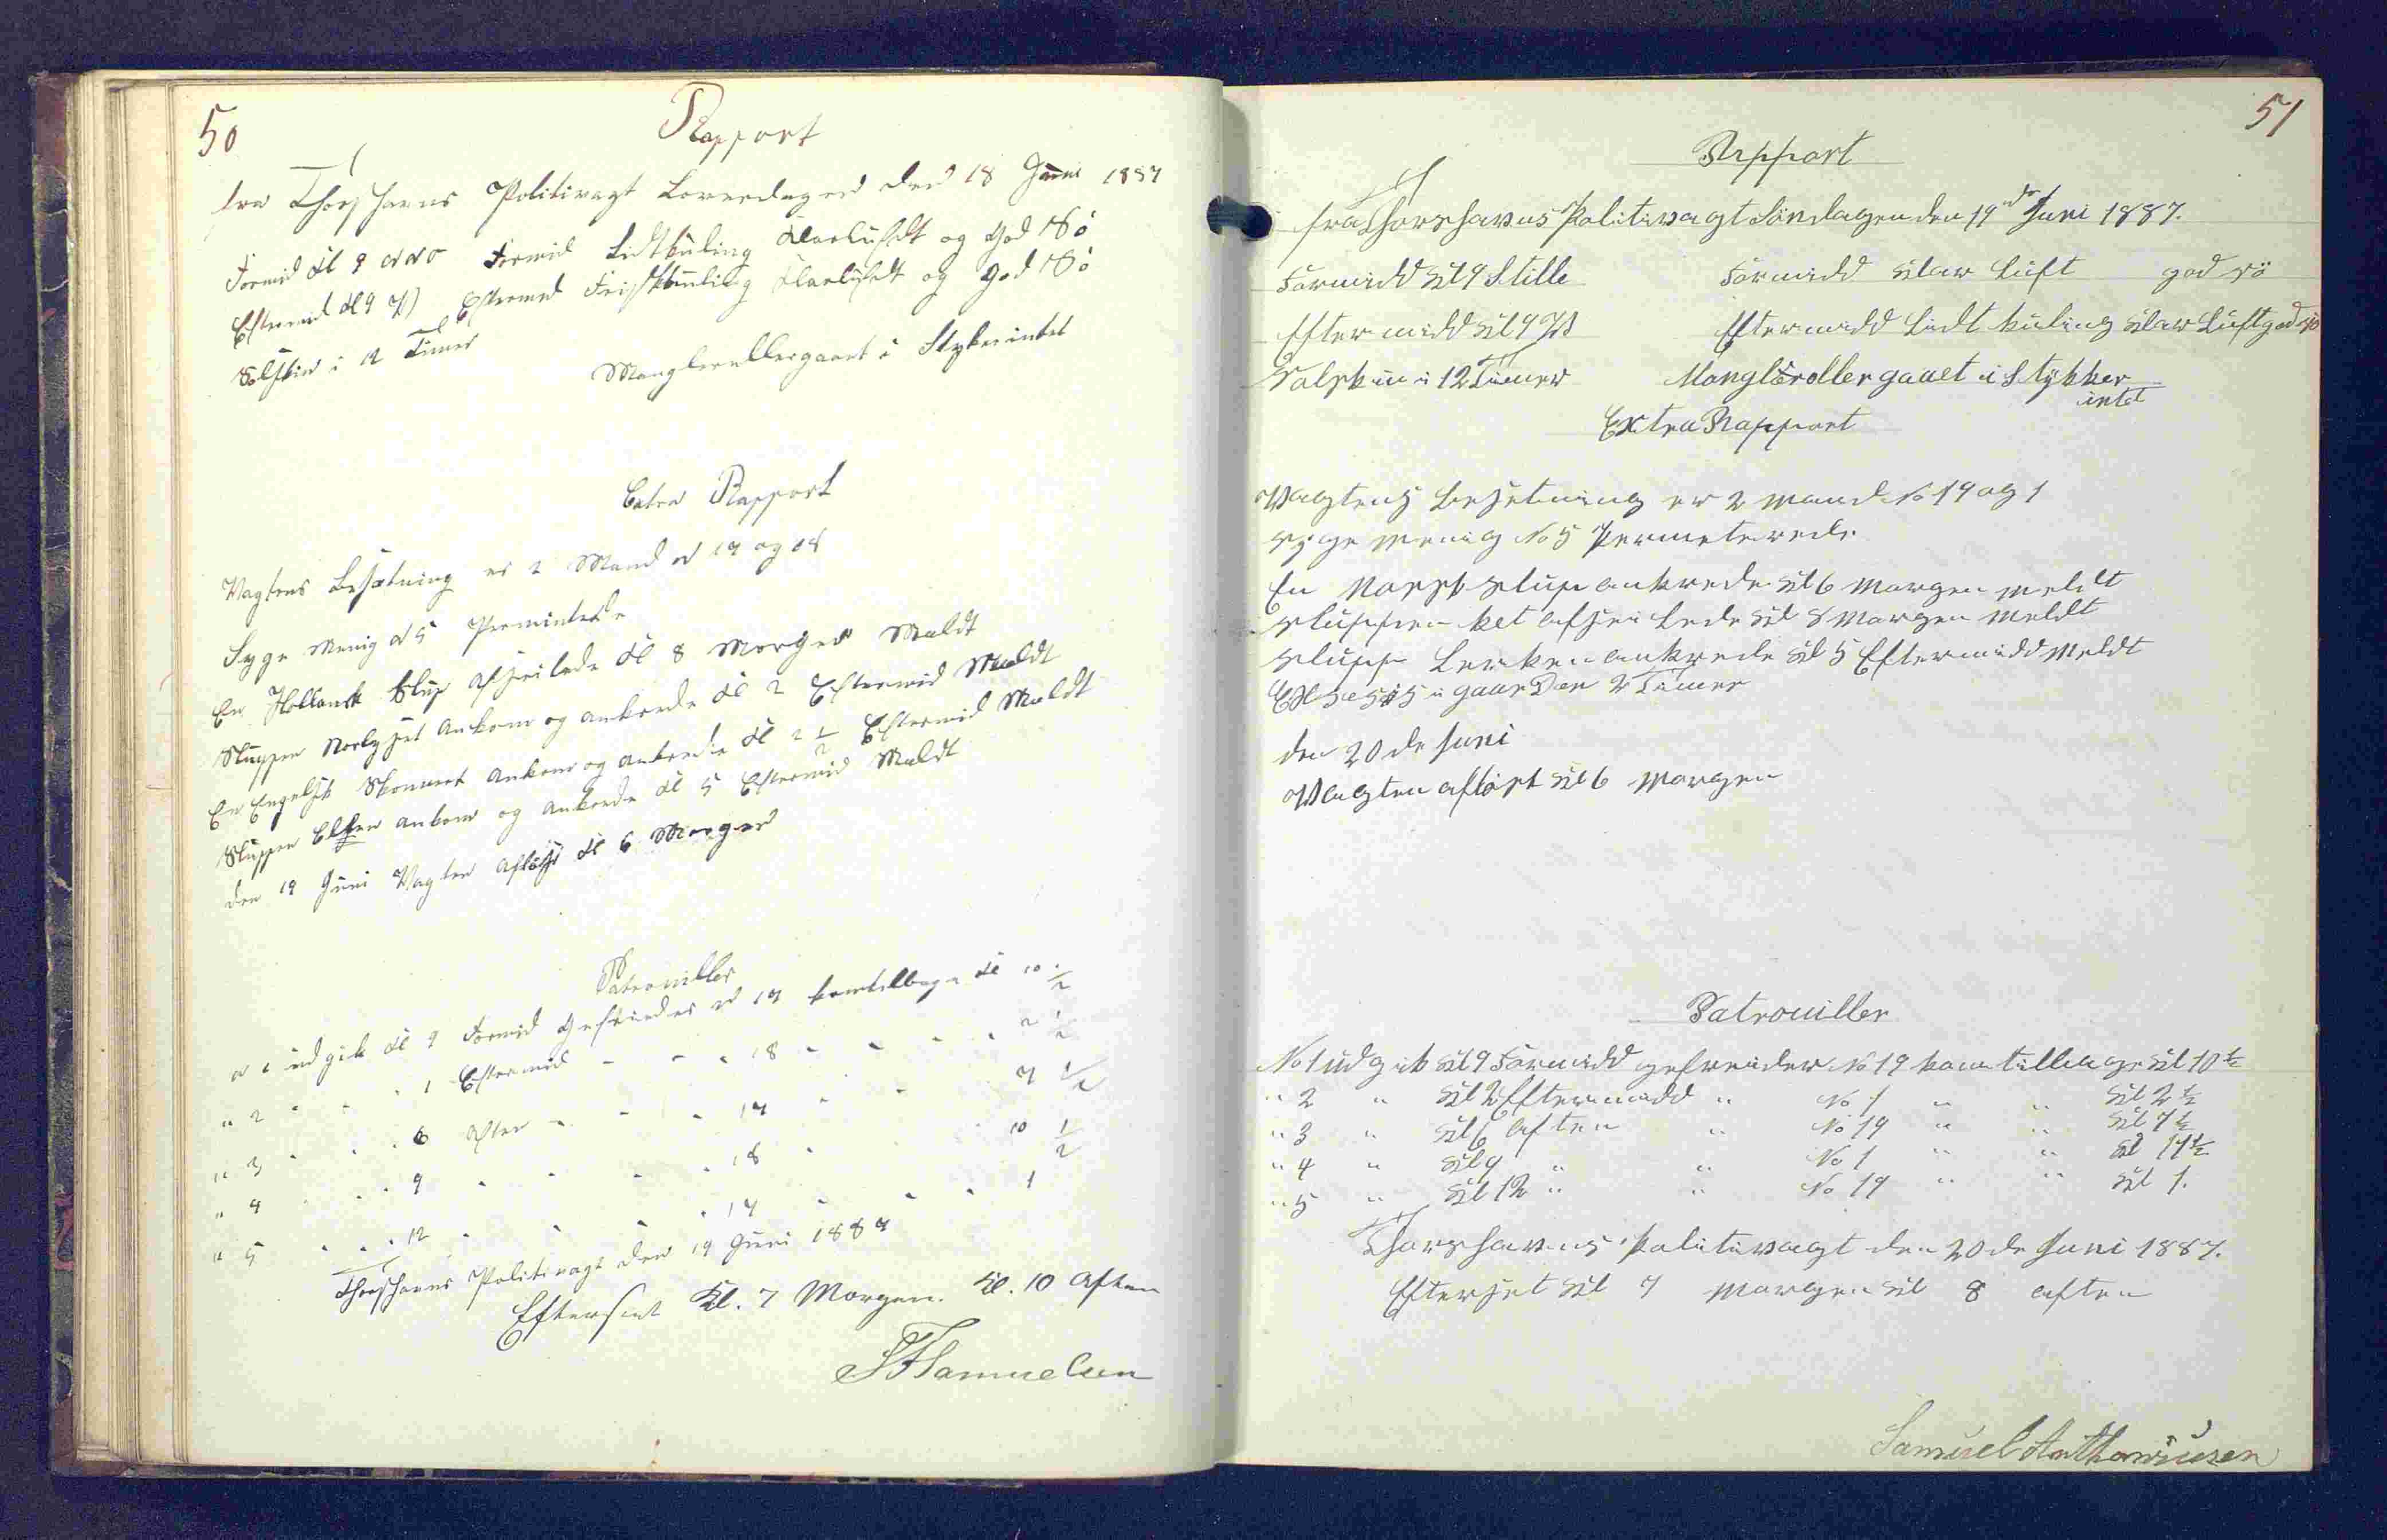 50
Rapport
fra Thorshavns Politivagt Løverdagen den 18 Juni 1887
Formid Kl 9 NNO Formid Lidtkuling Klarluft og God Sö
Eftermid Kl 9 Eftermid Friskkuling Klarluft og God Sö
Solskin i 12 Timer
Manglerellergaaet i Stykerintet
Extra Rapport
Vagtens Besætning er 2 Mand N 17 og 18
Syge Menig N 5 Perminterede
En Hollansk Slup afseilede Kl 8 Morgen Meldt
Sluppen Norlyset Ankom og ankrede Kl 2 Eftermid Meldt
En Engelsk Skonnert Ankom og ankrede Kl 2 1/2 Eftermid Meldt
Sluppen Ellen ankom og ankrede Kl 5 Eftermid Meldt
den 19 Juni Vagten Afløst Kl 6 Morgen
Patrouiller
N 1 udgik Kl 9 Formid Gefreider N 17 komtilbage Kl 10 1/2
" 2 " " " 1 Eftermid " " " 18 " " " " 2 1/2
" 3 " " " 6 Aften " " " 17 " " " 7 1/2
" 4 " " " 9 " " " " 18 " " " 10 1/2
" 5 " " " 12 " " " " 17 " " " 1
Thorshavns Politivagt den 19 Juni 1887
Efterseet Kl. 7 Morgen. Kl. 10 Aften
Samuelsen
51
Rapport
fra Thorshavns Politivagt Søndagen den 19de Juni 1887.
Formidd Kl 9 Stille Formidd Klar Luft god sö
Eftermidd Kl 9 Eftermidd Lidt kuling Klar Luft god sö
Solskin i 12 Timer Manglereller gaaet i Stykker
intet
Extra Rapport
Vagtens Besetning er 2 Mand No 19 og 1
syge Menig No 5 Permeterede
En Norsk slup ankrede Kl 6 Morgen meldt
sluppen afseilede Kl 8 Morgen Meldt
slupp Lerken ankrede Kl 5 Eftermidd Meldt
i gaar Den 2 Timer
den 20de Juni
Vagten afløst Kl 6 Morgen
Patrouiller
No 1 udgik Kl 9 Formidd gefreider No 19 kom tillbage Kl 10 1/2
" 2 " Kl 2 Eftermidd " No 1 " " Kl 2 1/2
" 3 " Kl 6 aften " No 19 " " Kl 7 1/2
" 4 " Kl 9 " " No 1 " " Kl 11 1/2
" 5 " Kl 12 " " No 19 " " Kl 1.
Thorshavns Politivagt den 20de Juni 1887.
Efterset Kl 7 Morgen Kl 8 aften
Samuel